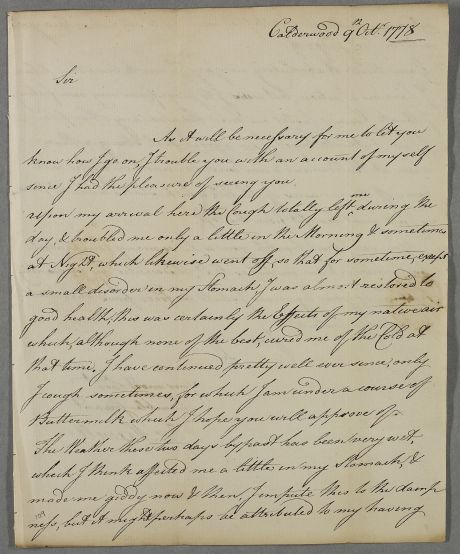 Calderwood 9th Octr. 1778
Sir
As it will be necessary for me to let you
know how I go on, I trouble you with an account of myself
since I had the pleasure of seeing you.
upon my arrival here the Cough totally left me during the
day, & troubled me only a little in the Morning & sometimes
at Night, which likewise went off, so that for sometime, except
a small disorder in my Stomach I was almost restored to
good health, this was certainly the Effects of my native air
which although none of the best, cured me of the Cold at
that time. I have continued pretty well ever since, only
I cough sometimes, for which I am under a course of
Buttermilk which I hope you will approve of.
The Weather these two days by past has been very wet,
which I think affected me a little in my Stomach, &
made me giddy now & then, I impute this to the damp
ness, but it might perhaps be attributed to my having